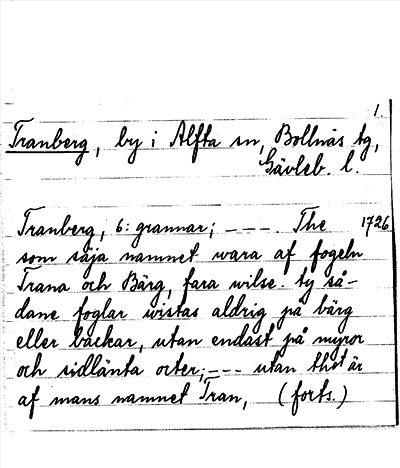 1.
Tranberg, by i Alfta sn, Bollnäs tg,
Gävleb. l.
Tranberg, 6: grannar; ---. The 1726
som säja namnet wara af fogeln
Trana och Bärg, fara wilse. ty så-
dane foglar wistas aldrig på bärg
eller backar, utan endast på myror
och sidlänta orter; --- utan thet är
af mans namnet Tran, (forts.)